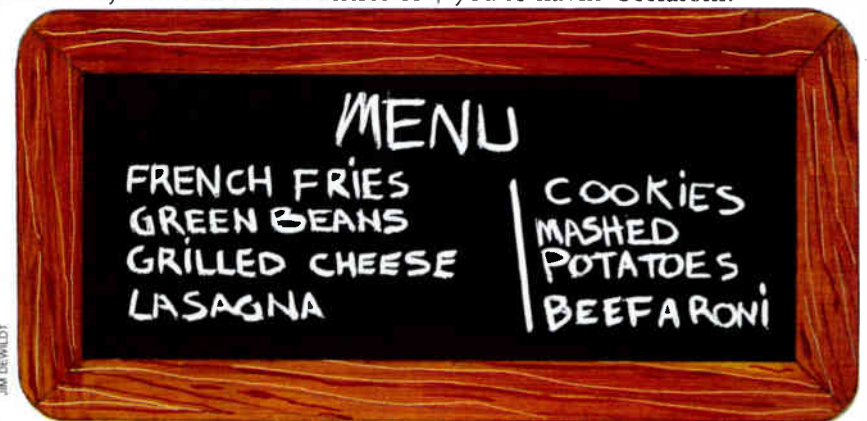 you're havin' Beefaroni!
MENU
FRENCH FRIES
GREEN BEANS
GRILLED CHEESE
LASAGNA
COOKIES
MASHED
POTATOES
BEEFARONI
JIM DEWILDT